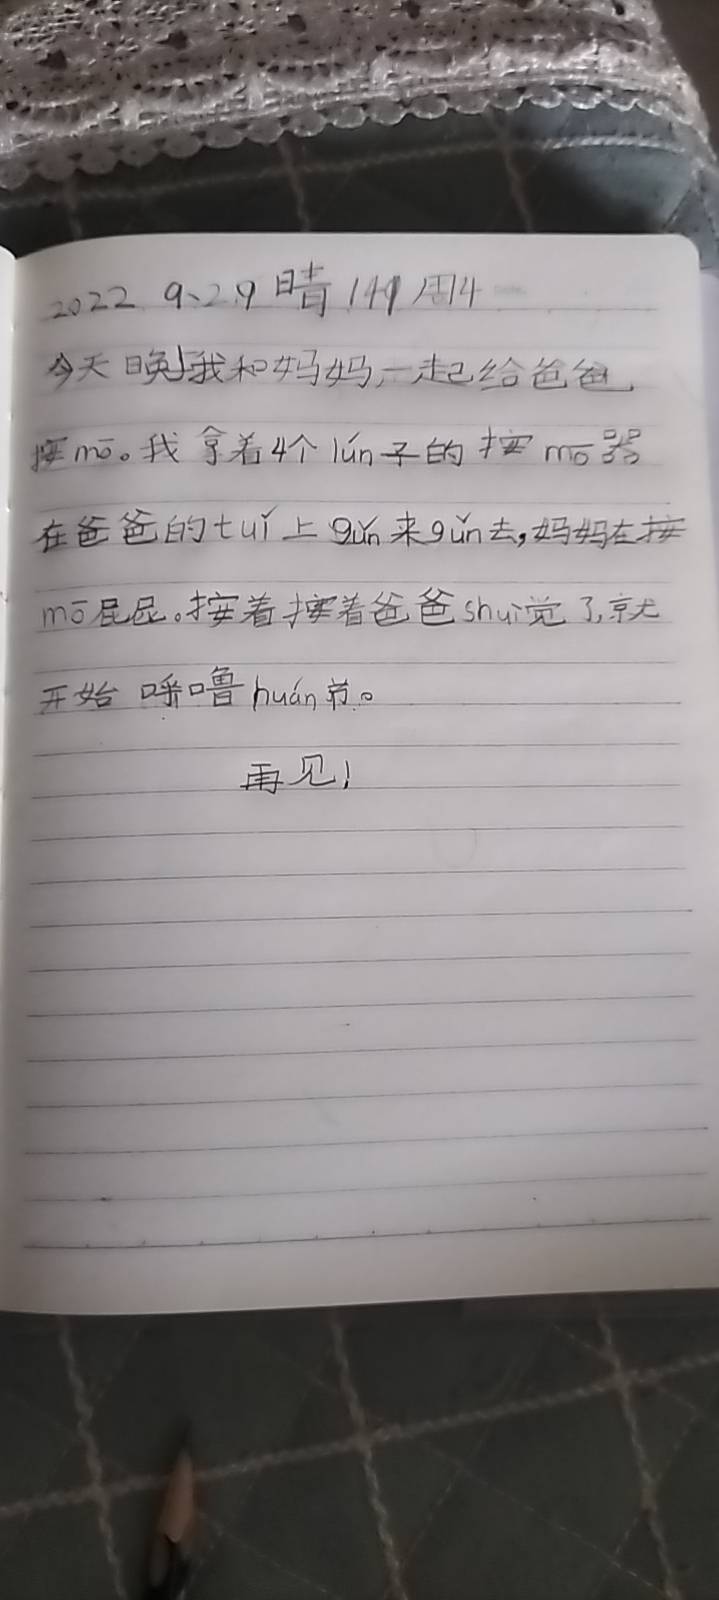 2022 9、29 晴 149 周4
今天晚上我和妈妈一起给爸爸
按mō。我拿着4个lún子的按mō器
在爸爸的tuǐ上gǔn来gǔn去,妈妈在按
mō屁屁。按着按着爸爸shuì觉了,就
开始呼噜huán节。
再见!